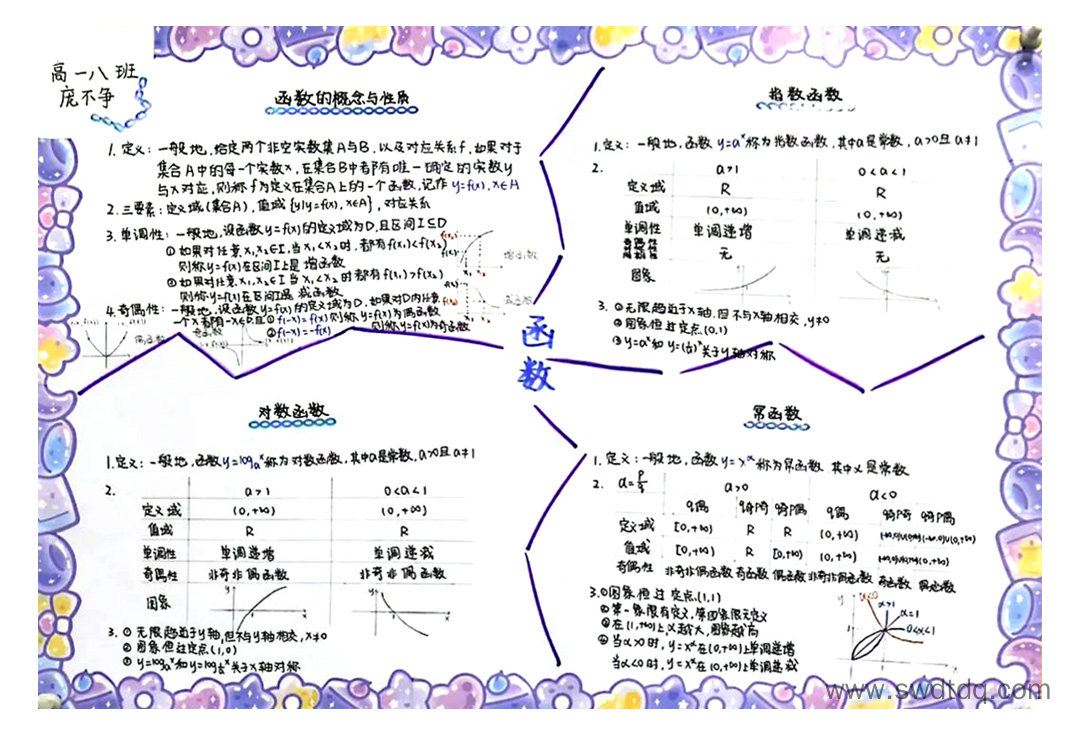 高一八班
庞不争
函数的概念与性质
1. 定义：一般地，给定两个非空实数集A与B，以及对应关系f，如果对于
集合A中的每一个实数x，在集合B中都有唯一确定的实数y
与x对应，则称f为定义在集合A上的一个函数，记作 y=f(x), x∈A
2. 三要素：定义域(集合A)，值域 {y|y=f(x), x∈A}，对应关系
3. 单调性：一般地，设函数y=f(x)的定义域为D，且区间I⊆D
①如果对任意x₁,x₂∈I，当x₁<x₂时，都有f(x₁)<f(x₂)
则称y=f(x)在区间I上是 增函数
②如果对任意x₁,x₂∈I 当x₁<x₂时都有f(x₁)>f(x₂)
则称y=f(x)在区间I是 减函数
增函数
减函数
4. 奇偶性：一般地，设函数y=f(x)的定义域为D，如果对D内任意
一个x都有-x∈D，且①f(-x)=f(x)则称y=f(x)为偶函数
②f(-x)=-f(x) 则称y=f(x)为奇函数
偶函数
奇函数
指数函数
1. 定义：一般地，函数 y=aˣ称为指数函数，其中a是常数，a>0且a≠1
2. a>1 0<a<1
定义域 R R
值域 (0,+∞) (0,+∞)
单调性 单调递增 单调递减
奇偶性 无 无
图象
3. ①无限趋近于x轴，但不与x轴相交，y≠0
②图象恒过定点(0,1)
③y=aˣ和y=(1/a)ˣ关于y轴对称
函
数
对数函数
1. 定义：一般地，函数y=logₐx称为对数函数，其中a是常数，a>0且a≠1
2. a>1 0<a<1
定义域 (0,+∞) (0,+∞)
值域 R R
单调性 单调递增 单调递减
奇偶性 非奇非偶函数 非奇非偶函数
图象
3. ①无限趋近于y轴，但不与y轴相交，x≠0
②图象恒过定点(1,0)
③y=logₐx和y=log1/a x关于x轴对称
幂函数
1. 定义：一般地，函数 y=x^α 称为幂函数 其中α是常数
2. α=p/q α>0 α<0
q偶 q奇p奇 q奇p偶 q偶 q奇p奇 q奇p偶
定义域 [0,+∞) R R (0,+∞) (-∞,0)∪(0,+∞) (-∞,0)∪(0,+∞)
值域 [0,+∞) R [0,+∞) (0,+∞) (-∞,0)∪(0,+∞) (0,+∞)
奇偶性 非奇非偶函数 奇函数 偶函数 非奇非偶函数 奇函数 偶函数
3. ①图象恒过定点(1,1)
②第一象限有定义，第四象限无定义
③在(1,+∞)上，α越大，图象越高
④当α>0时，y=x^α在(0,+∞)上单调递增
当α<0时，y=x^α在(0,+∞)上单调递减
α<0
α>1
α=1
0<α<1
www.swdtdq.com